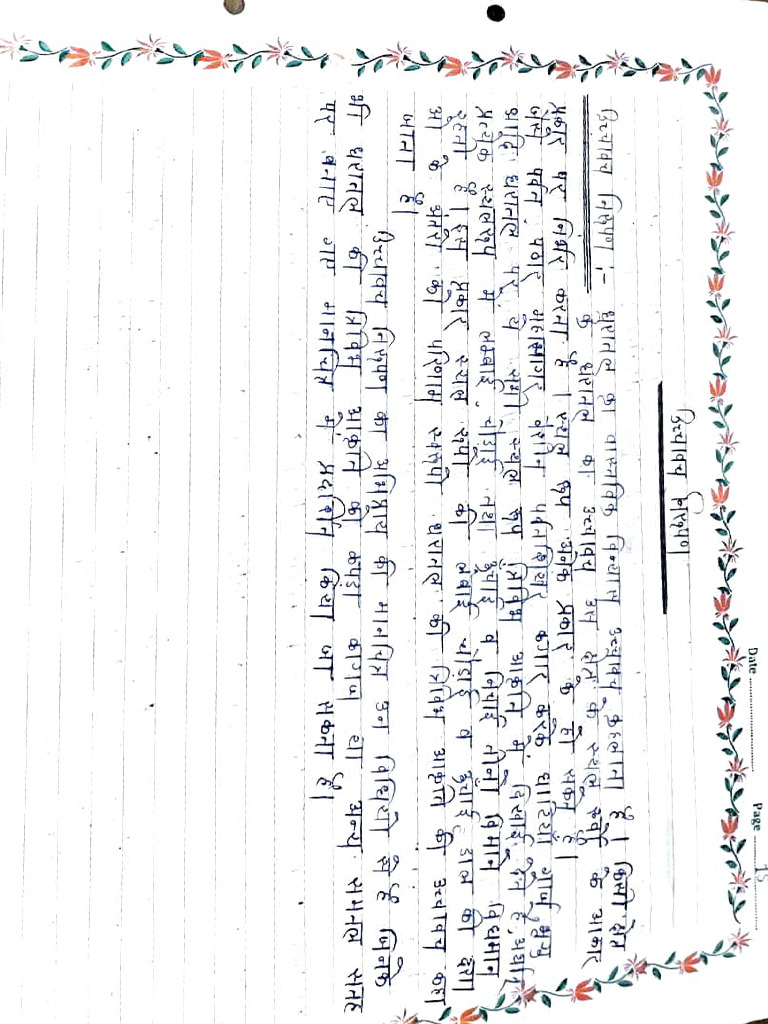 Date
Page 15
उच्चावच निरूपण
उच्चावच निरूपण :- धरातल का वास्तविक विन्यास उच्चावच कहलाता है। किसी क्षेत्र
के धरातल का उच्चावच उस क्षेत्र के स्थल रूपों के आकार
प्रकार पर निर्भर करता है। स्थल रूप अनेक प्रकार के हो सकते हैं।
जैसे पर्वत, पठार महासागर मैदान पर्वतशिखर कगार घाटियाँ
आदि धरातल पर ये सभी स्थल रूप त्रिविम आकृति में दिखाई देते है, अर्थात
प्रत्येक स्थलरूप में लम्बाई चौड़ाई तथा ऊँचाई व निचाई तीनों विमाने विद्यमान
रहती है। इस प्रकार स्थल रूपों की लंबाई चौड़ाई व ऊँचाई ढाल की दशा
ओं के अंतरों का परिणाम स्वरूप धरातल की त्रिविम आकृति को उच्चावच कहा
जाता है।
उच्चावच निरूपण का अभिप्राय की मानचित्र उन विधियों से है जिनके
भी धरातल की त्रिविम आकृति को कपड़ा कागज या अन्य समतल सतह
पर बनाए गए मानचित्र में प्रदर्शित किया जा सकता है।